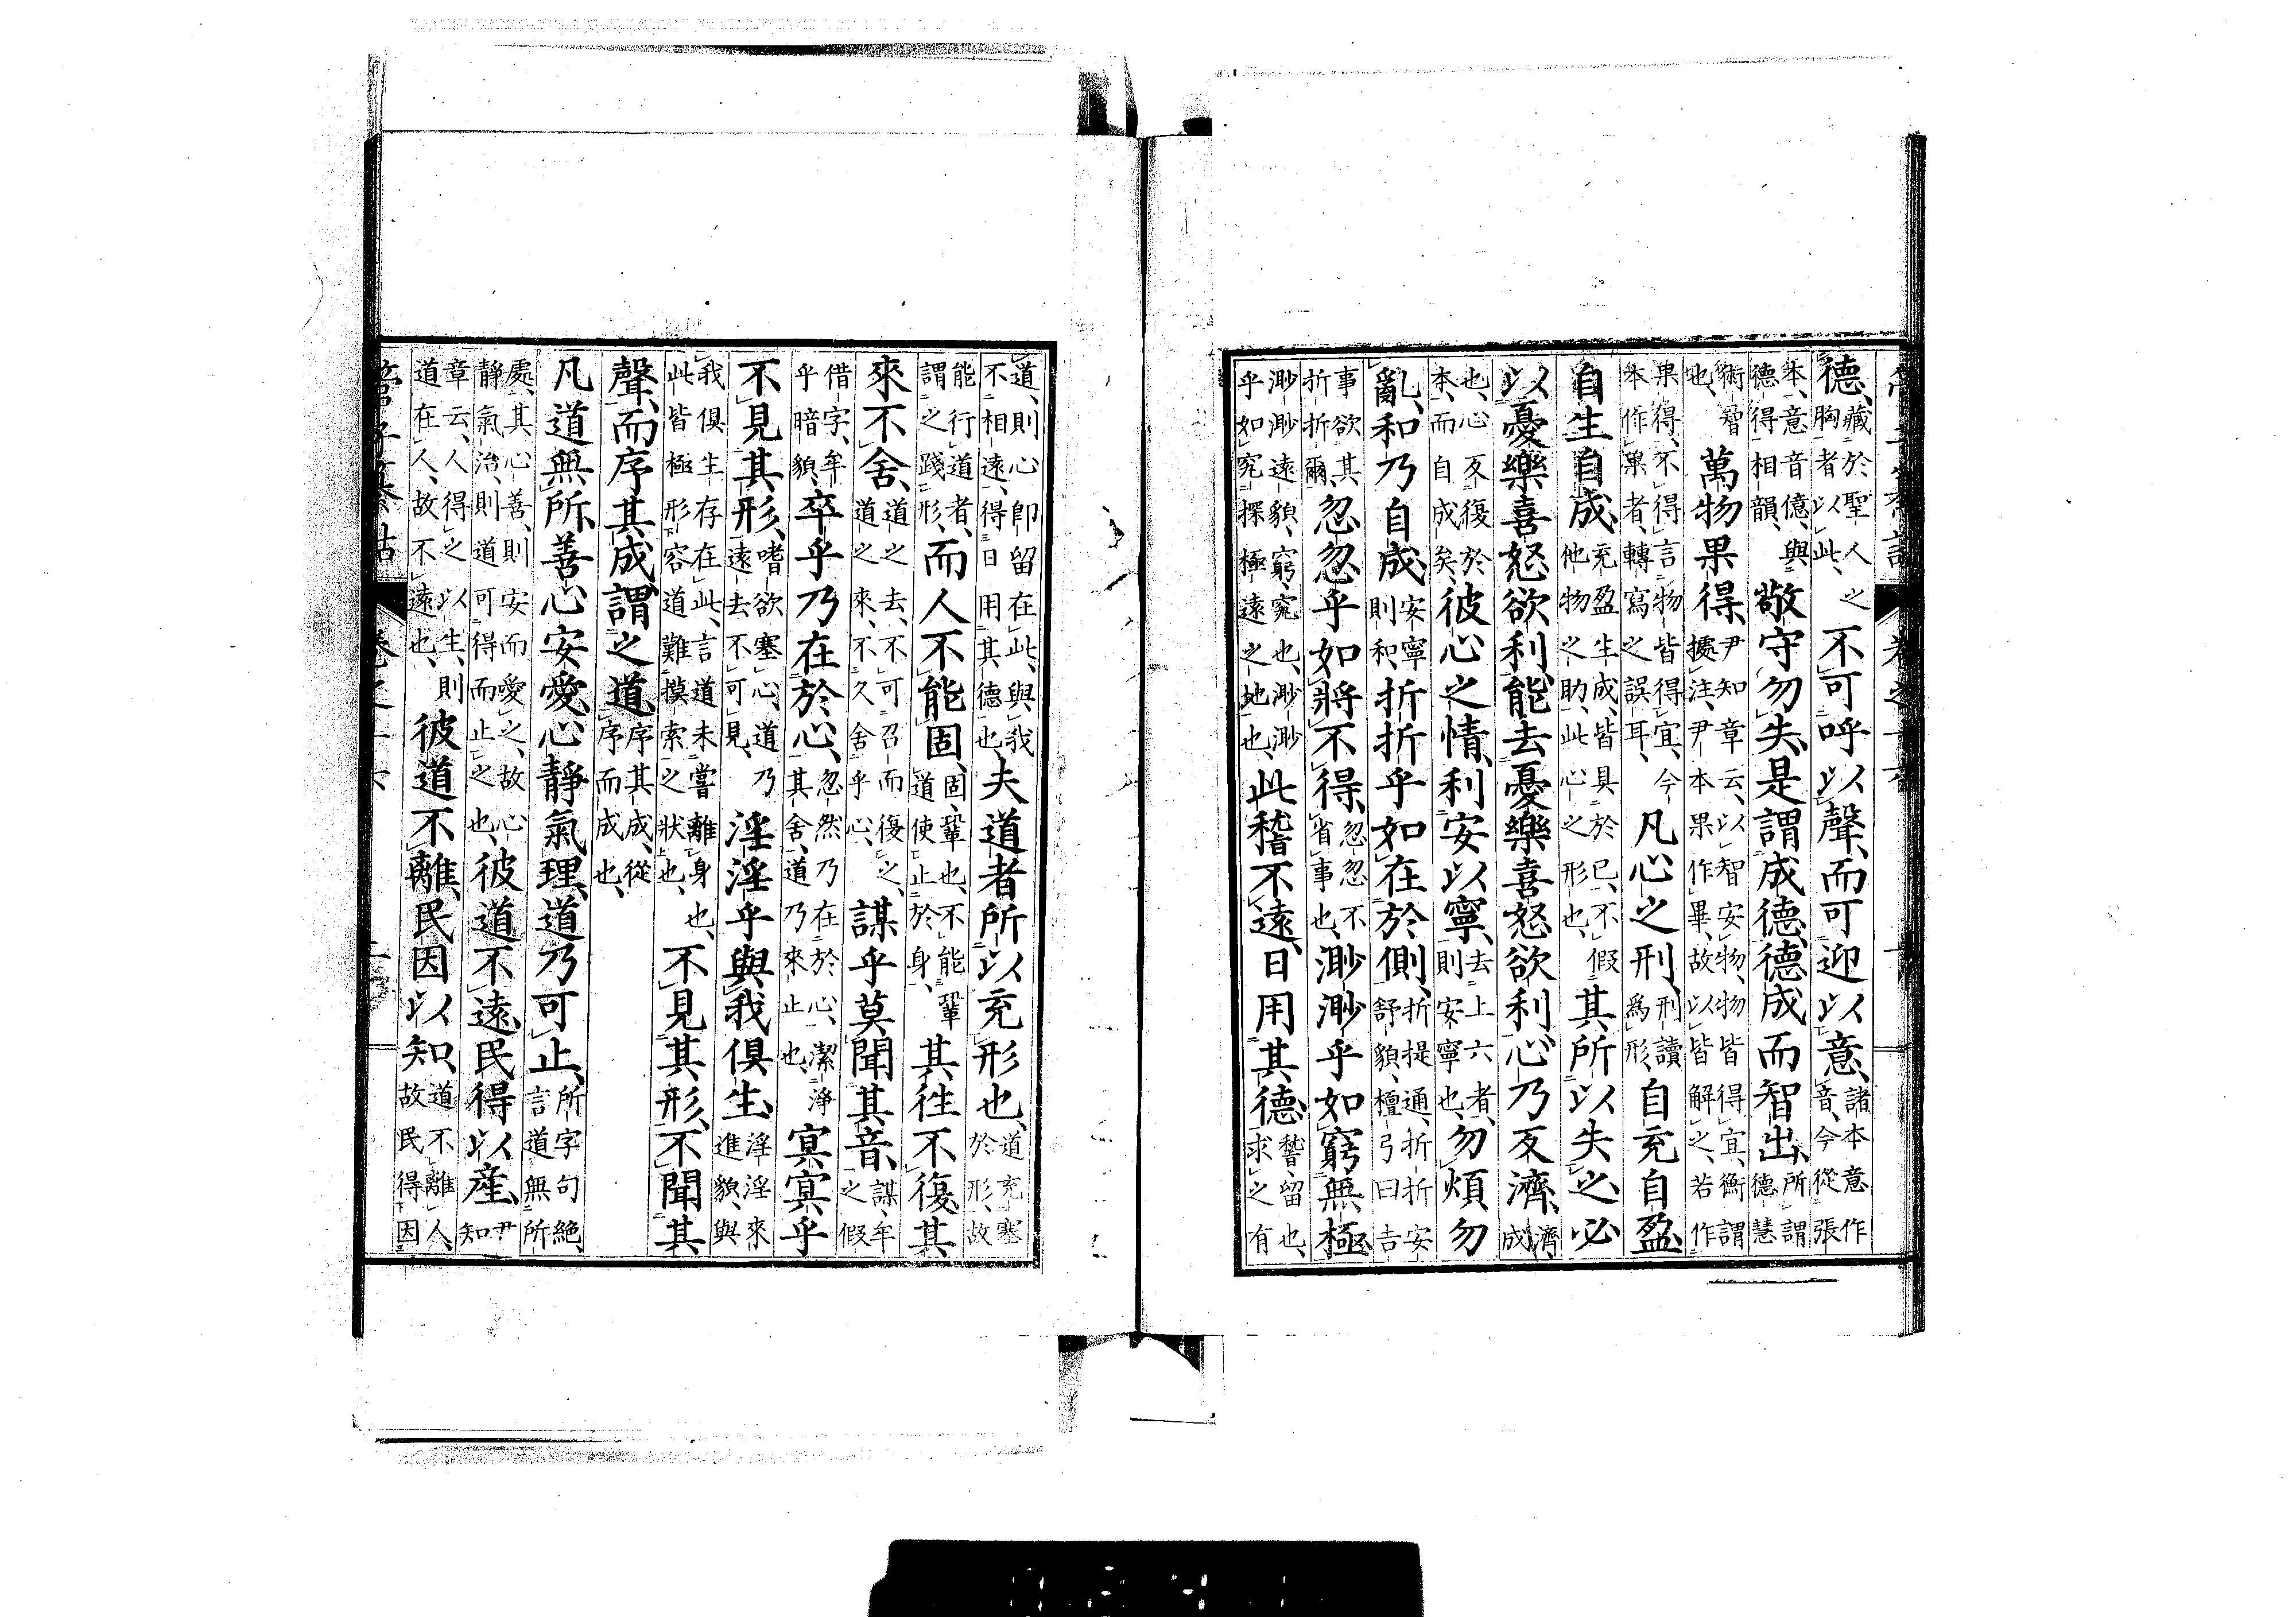 管子纂詁 卷之十六
德、藏於聖人之胸者、以此、不可呼以聲、而可迎以意、諸本意作音、今從張
本、意音億、與德得相韻、敬守勿失、是謂成德、德成而智出、所謂德慧
術智也、萬物果得、尹知章云、以智安物、物皆得宜、衡謂據注、尹本果作畢、故以皆解之、若作
果得、不得言物皆得宜、今本作果者、轉寫之誤耳、凡心之刑、刑讀爲形、自充自盈、
自生自成、充盈生成、皆具於已、不假他物之助、此心之形也、其所以失之必
以憂樂喜怒欲利、能去憂樂喜怒欲利、心乃反濟、濟、成
也、心反復於本、而自成矣、彼心之情、利安以寧、去上六者、則安寧也、勿煩勿
亂、和乃自成、安寧則和、折折乎如在於側、折提通、折折安舒貌、檀弓曰吉
事欲其折折爾、忽忽乎如將不得、忽忽不省事也、渺渺乎如窮無極、
渺渺遠貌、窮、究也、渺渺乎如究探極遠之地也、此稽不遠、日用其德、稽、留也、求之有
道、則心卽留在此、與我不相遠、得日用其德也、夫道者所以充形也、道充塞於形、故
能行道者、謂之踐形、而人不能固、固、鞏也、不能鞏道使止於身、其往不復、其
來不舍、道之去、不可召而復之、道之來、不久舍乎心、謀乎莫聞其音、謀、牟之假
借字、牟乎暗貌、卒乎乃在於心、忽然乃在於心、潔淨其舍、道乃來止也、冥冥乎
不見其形、嗜欲塞心、道乃遠去不可見、淫淫乎與我俱生、淫淫來進貌、與
我俱生存在此、言道未嘗離身也、此皆極形容道難摸索之狀也、不見其形、不聞其
聲、而序其成、謂之道、序其成、從序而成也、
凡道無所、善心安愛、心靜氣理、道乃可止、所字句絕、言道無所
處、其心善、則安而愛之、故心靜氣治、則道可得而止之也、彼道不遠、民得以產、尹知
章云、人得之以生、則道在人、故不遠也、彼道不離、民因以知、道不離人、故民得因
管子纂詁 卷之十六